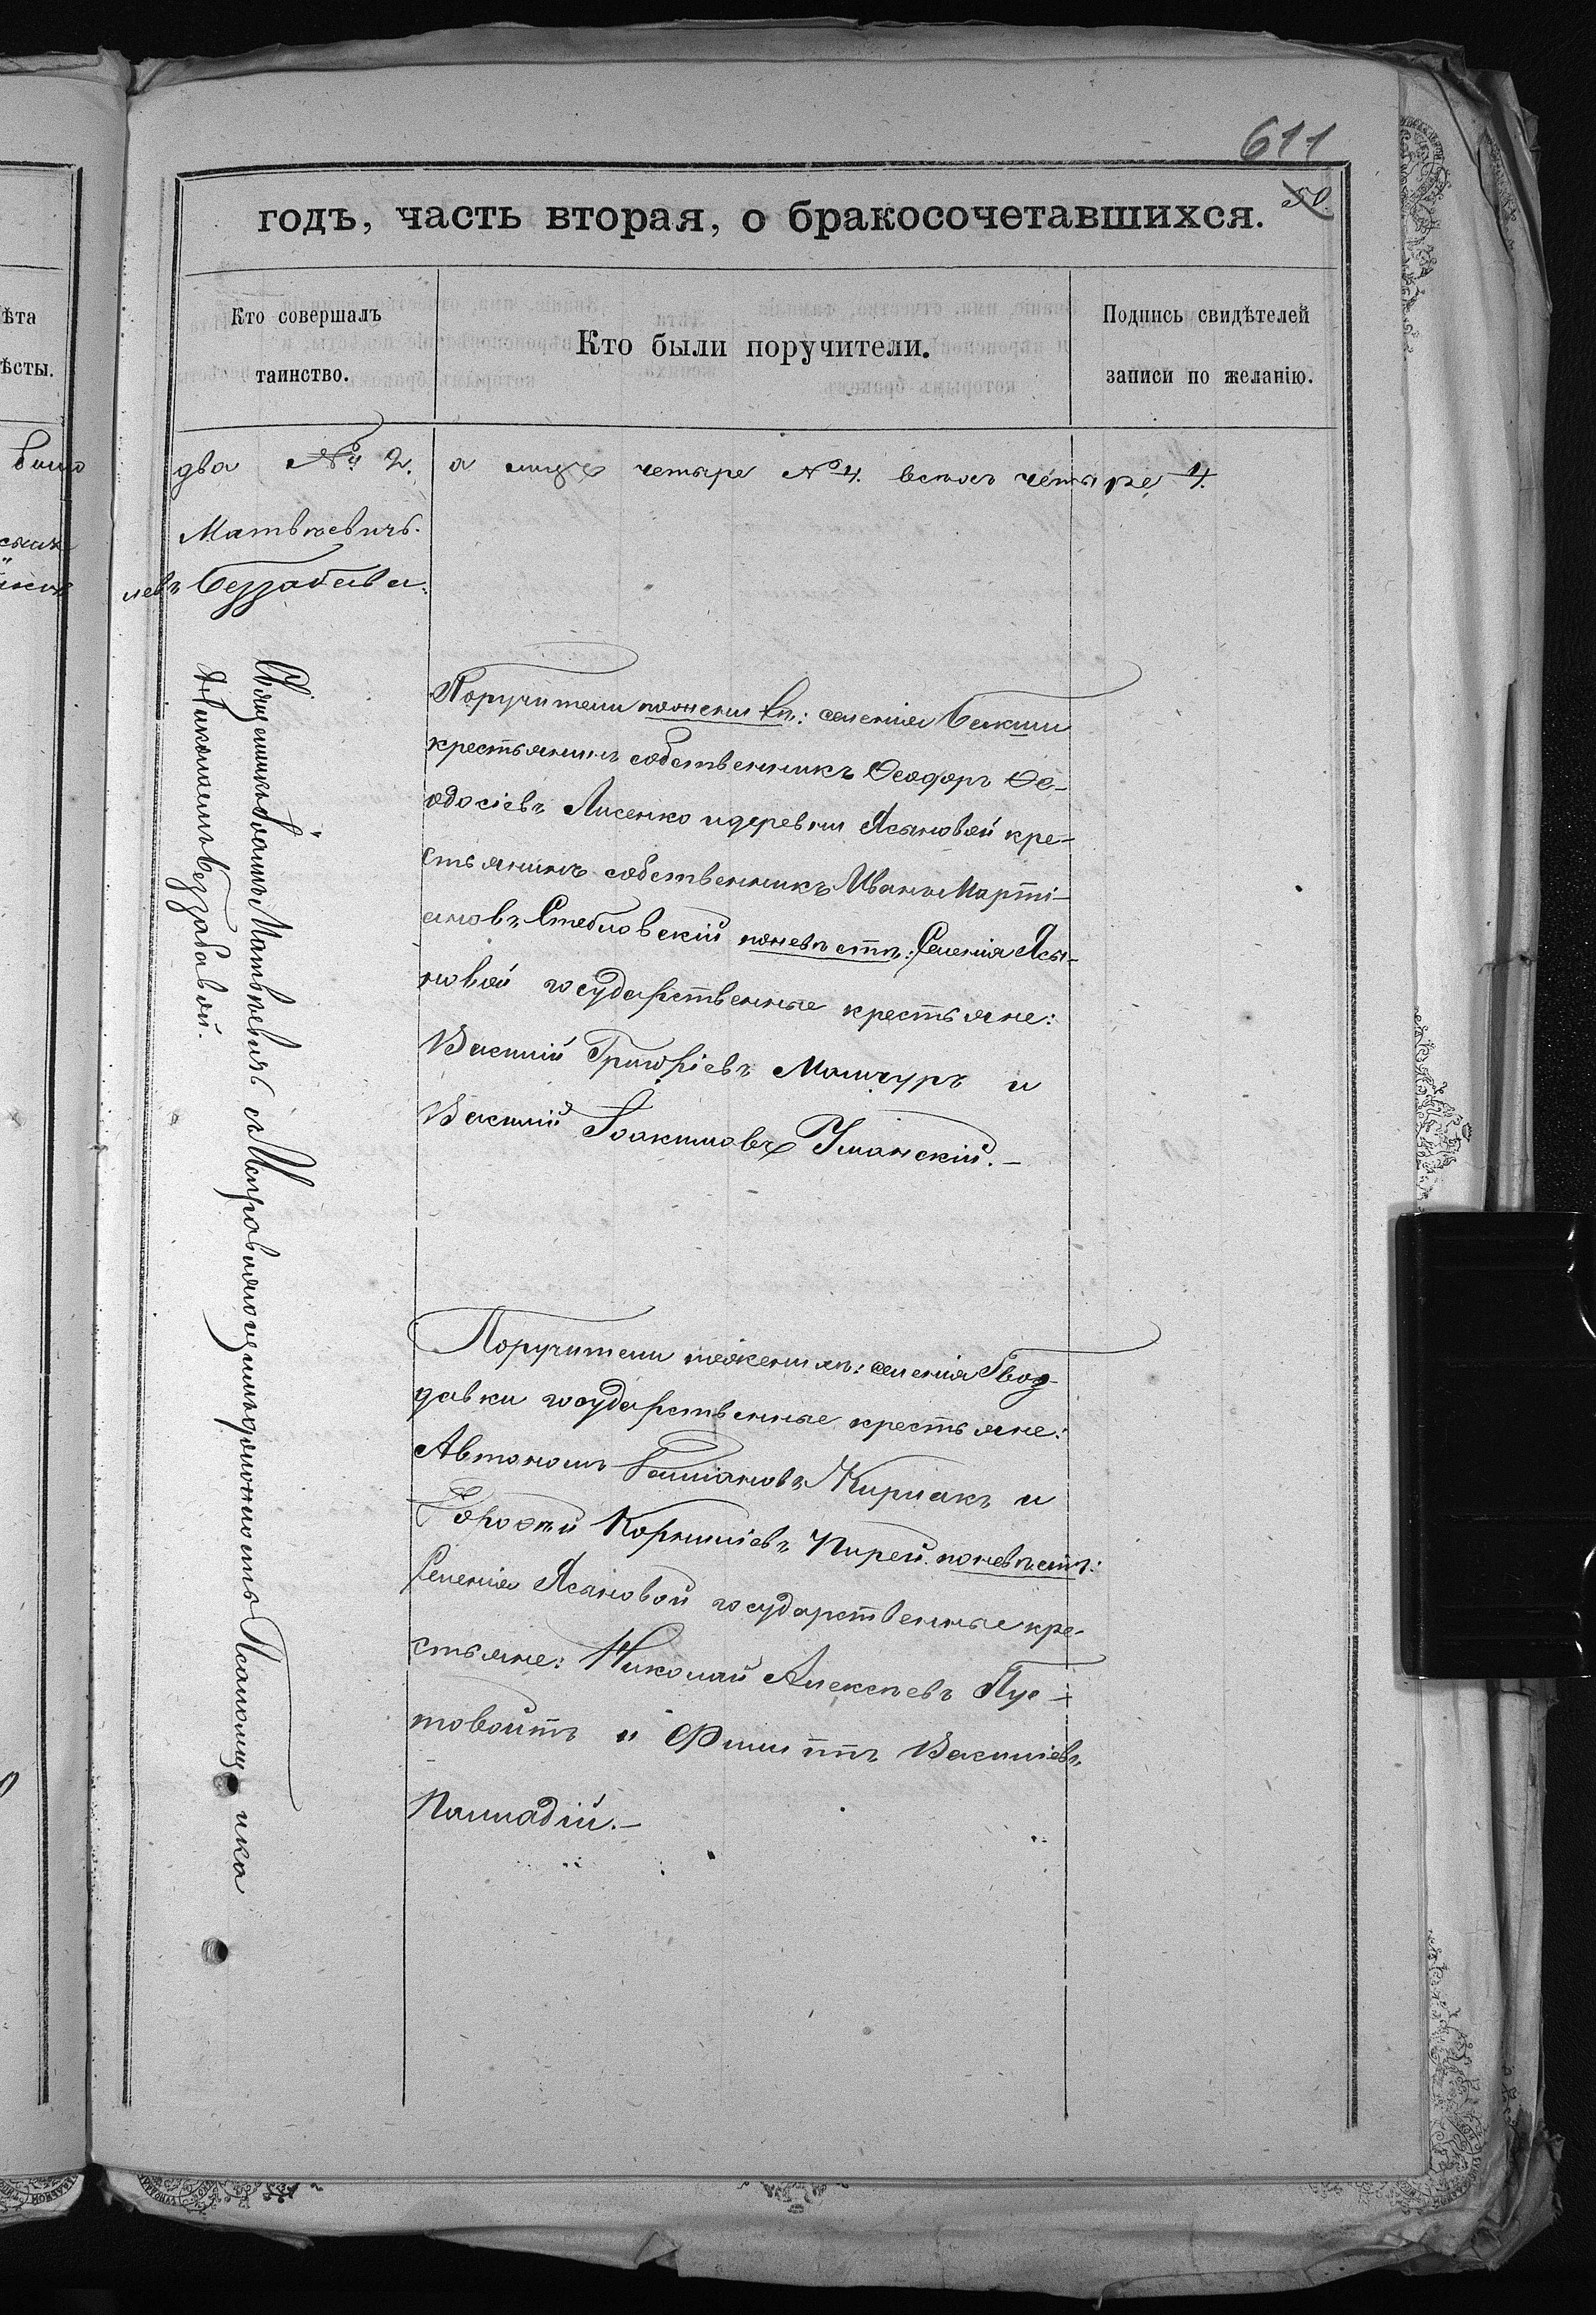 611
50
годъ, часть вторая, о бракосочетавшихся.
Кто совершалъ
таинство.
Кто были поручители.
Подпись свидѣтелей
записи по желанію.
ѣта
ѣсты.
два № 2. а четыре № 4. всѣхъ четыре 4.
Матвѣевичъ.
Беззабава.
Священникъ Іоаннъ Матвѣевичъ съ Исправляющимъ должность Псаломщика
Николаемъ Беззабавой.
Поручители по женихѣ: селенія
крестьянинъ собственникъ Ѳеодоръ Ѳе-
одосіевъ Лисенко и деревни Ясыновой кре-
стьянинъ собственникъ Иванъ Марті-
ановъ Стебловскій по невѣстѣ: Селенія Ясы-
новой государственные крестьяне:
Василій Григоріевъ Манчуръ и
Василій Іоакимовъ Уманскій.—
Поручители по женихѣ: селенія Гвоз-
давки государственные крестьяне:
Автономъ Кириакъ и
Дороѳей Корниліевъ Пирей. по невѣстѣ:
Селенія Ясановой государственные кре-
стьяне: Николай Алексѣевъ Пус-
товойтъ и Филиппъ Василіевъ
Палладій.—